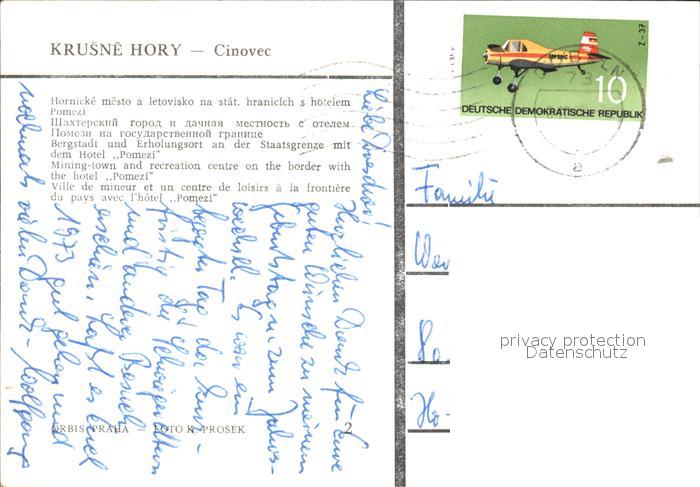 KRUŠNÉ HORY — Cínovec
Hornické město a letovisko na stát. hranicích s hotelem
Pomezí
Шахтерский город и дачная местность с отелем
Помези на государственной границе
Bergstadt und Erholungsort an der Staatsgrenze mit
dem Hotel „Pomezí"
Mining-town and recreation centre on the border with
the hotel „Pomezí"
Ville de mineur et un centre de loisirs à la frontière
du pays avec l'hôtel „Pomezí"
ORBIS PRAHA — FOTO K. PROSEK
2
Z-37
DM-SMC
10
DEUTSCHE DEMOKRATISCHE REPUBLIK
Familie
privacy protection
Datenschutz
Herzlichen Dank für Eure
guten Wünsche zu meinem
Geburtstag u. zum Jahres-
wechsel. Es war ein
Tag, da
die Schwiegereltern
und anderer Besuch
erschien. Laßt es Euch
1973 gut gehen und
nochmals vielen Dank - Wolfgang